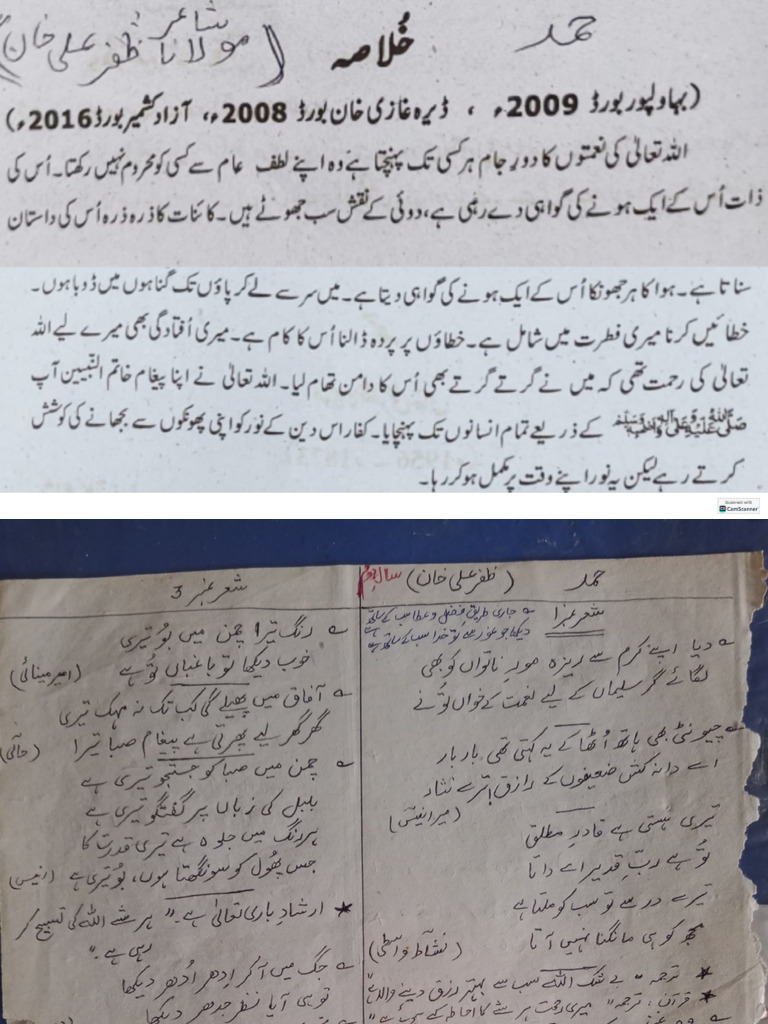 حمد
خُلاصہ
(شاعر مولانا ظفر علی خان)
(بہاولپور بورڈ 2009ء ، ڈیرہ غازی خان بورڈ 2008ء، آزاد کشمیر بورڈ 2016ء)
اللہ تعالیٰ کی نعمتوں کا دورِ جام ہر کسی تک پہنچتا ہے وہ اپنے لطف عام سے کسی کو محروم نہیں رکھتا۔ اُس کی
ذات اُس کے ایک ہونے کی گواہی دے رہی ہے، دوئی کے نقش سب جھوٹے ہیں۔ کائنات کا ذرہ ذرہ اُس کی داستان
سناتا ہے۔ ہوا کا ہر جھونکا اُس کے ایک ہونے کی گواہی دیتا ہے۔ میں سر سے لے کر پاؤں تک گناہوں میں ڈوبا ہوں۔
خطائیں کرنا میری فطرت میں شامل ہے۔ خطاؤں پر پردہ ڈالنا اُس کا کام ہے۔ میری اُفتادگی بھی میرے لیے اللہ
تعالیٰ کی رحمت تھی کہ میں نے گرتے گرتے بھی اُس کا دامن تھام لیا۔ اللہ تعالیٰ نے اپنا پیغام خاتم النّبیین آپ
کے ذریعے تمام انسانوں تک پہنچایا۔ کفار اس دین کے نور کو اپنی پھونکوں سے بجھانے کی کوشش
کرتے رہے لیکن یہ نور اپنے وقت پر مکمل ہو کر رہا۔
Scanned with
CS CamScanner
حمد (ظفر علی خان) سال دوم
شعر نمبر 1
جاری طریقِ فضل و عطا سب کے ساتھ ہے
دیکھا جو غور سے تو خدا سب کے ساتھ ہے
دیا اپنے کرم سے ریزہ مورِ ناتواں کو بھی
لگائے گر سلیماں کے لیے نعمت کے خواں تُو نے
چیونٹی بھی ہاتھ اُٹھا کے یہ کہتی تھی بار بار
اے دانہ کش ضعیفوں کے رازق! ترے نثار
(میر انیس)
تیری ہستی ہے قادرِ مطلق
تُو ہے ربِّ قدیر اے داتا
تیرے در سے تو سب کو ملتا ہے
مجھ کو ہی مانگنا نہیں آتا
(نشاط واسطی)
★ ترجمہ "بے شک اللہ سب سے بہتر رزق دینے والا ہے"
★ قرآن، ترجمہ "میری رحمت ہر شے کا احاطہ کیے ہوئے ہے"
شعر نمبر 3
رنگ تیرا چمن میں بُو تیری
خوب دیکھا تو باغباں تُو ہے
(امیر مینائی)
آفاق میں پھیلے گی کب تک نہ مہک تیری
گھر گھر لیے پھرتی ہے پیغام صبا تیرا
(حالی)
چمن میں صبا کو جستجو تیری ہے
بلبل کی زباں پر گفتگو تیری ہے
ہر رنگ میں جلوہ ہے تیری قدرت کا
جس پھُول کو سونگھتا ہوں، بُو تیری ہے
(انیس)
★ ارشادِ باری تعالیٰ ہے۔ "ہر شے اللہ کی تسبیح کر
رہی ہے۔"
جگ میں آ کر اِدھر اُدھر دیکھا
تو ہی آیا نظر جدھر دیکھا